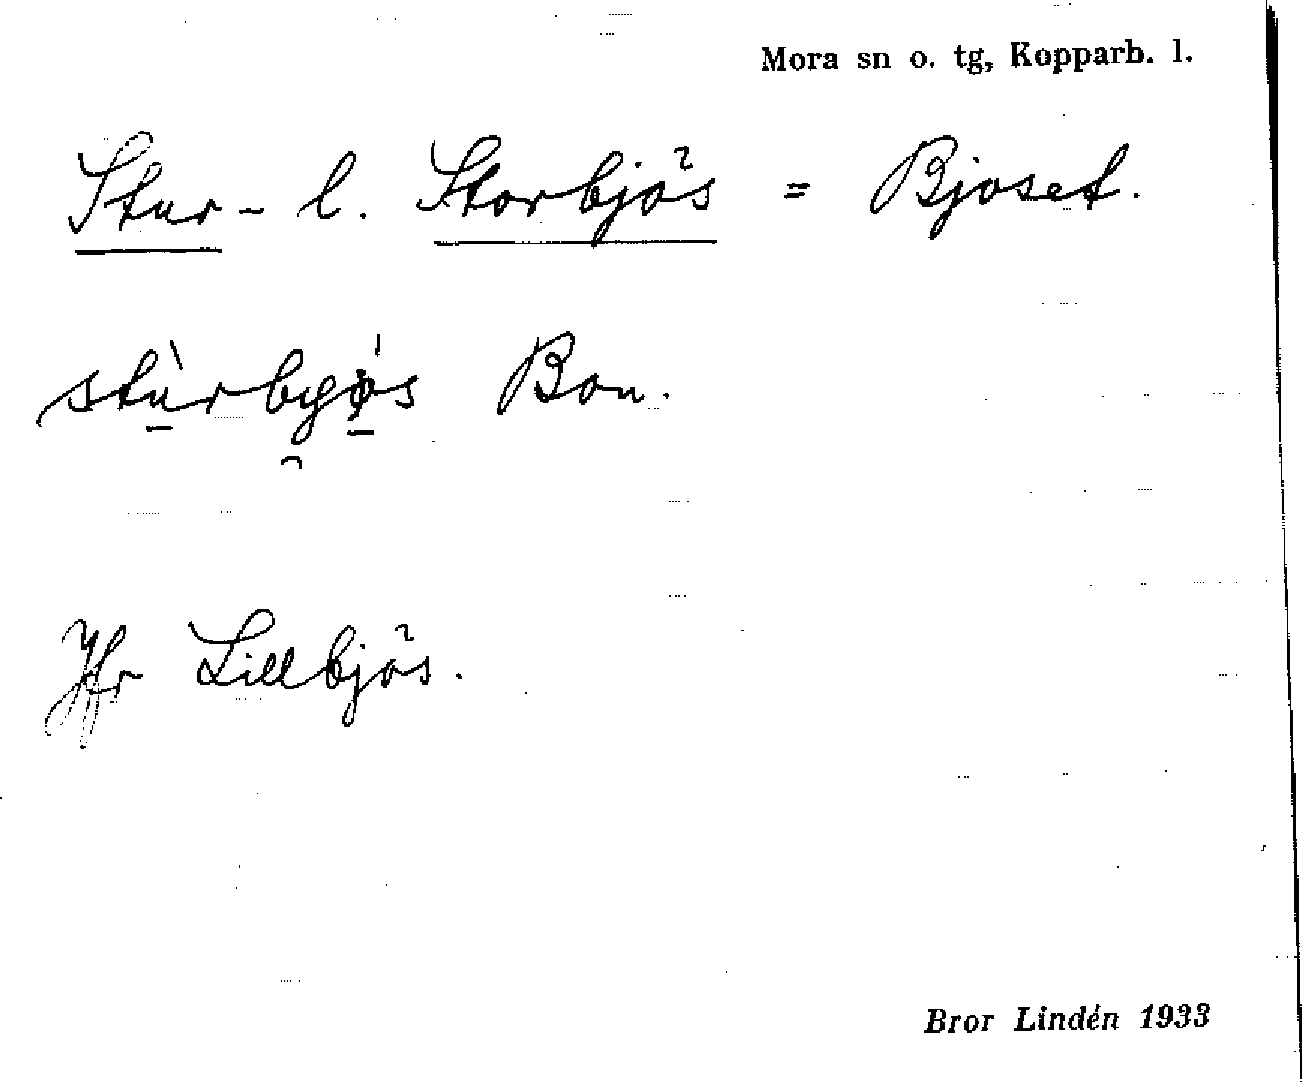 Mora sn o. tg, Kopparb. l.
Stur- l. Storbjős = Bjoset.
stùrbyøs Bon.
Jfr Lillbjős.
Bror Lindén 1933